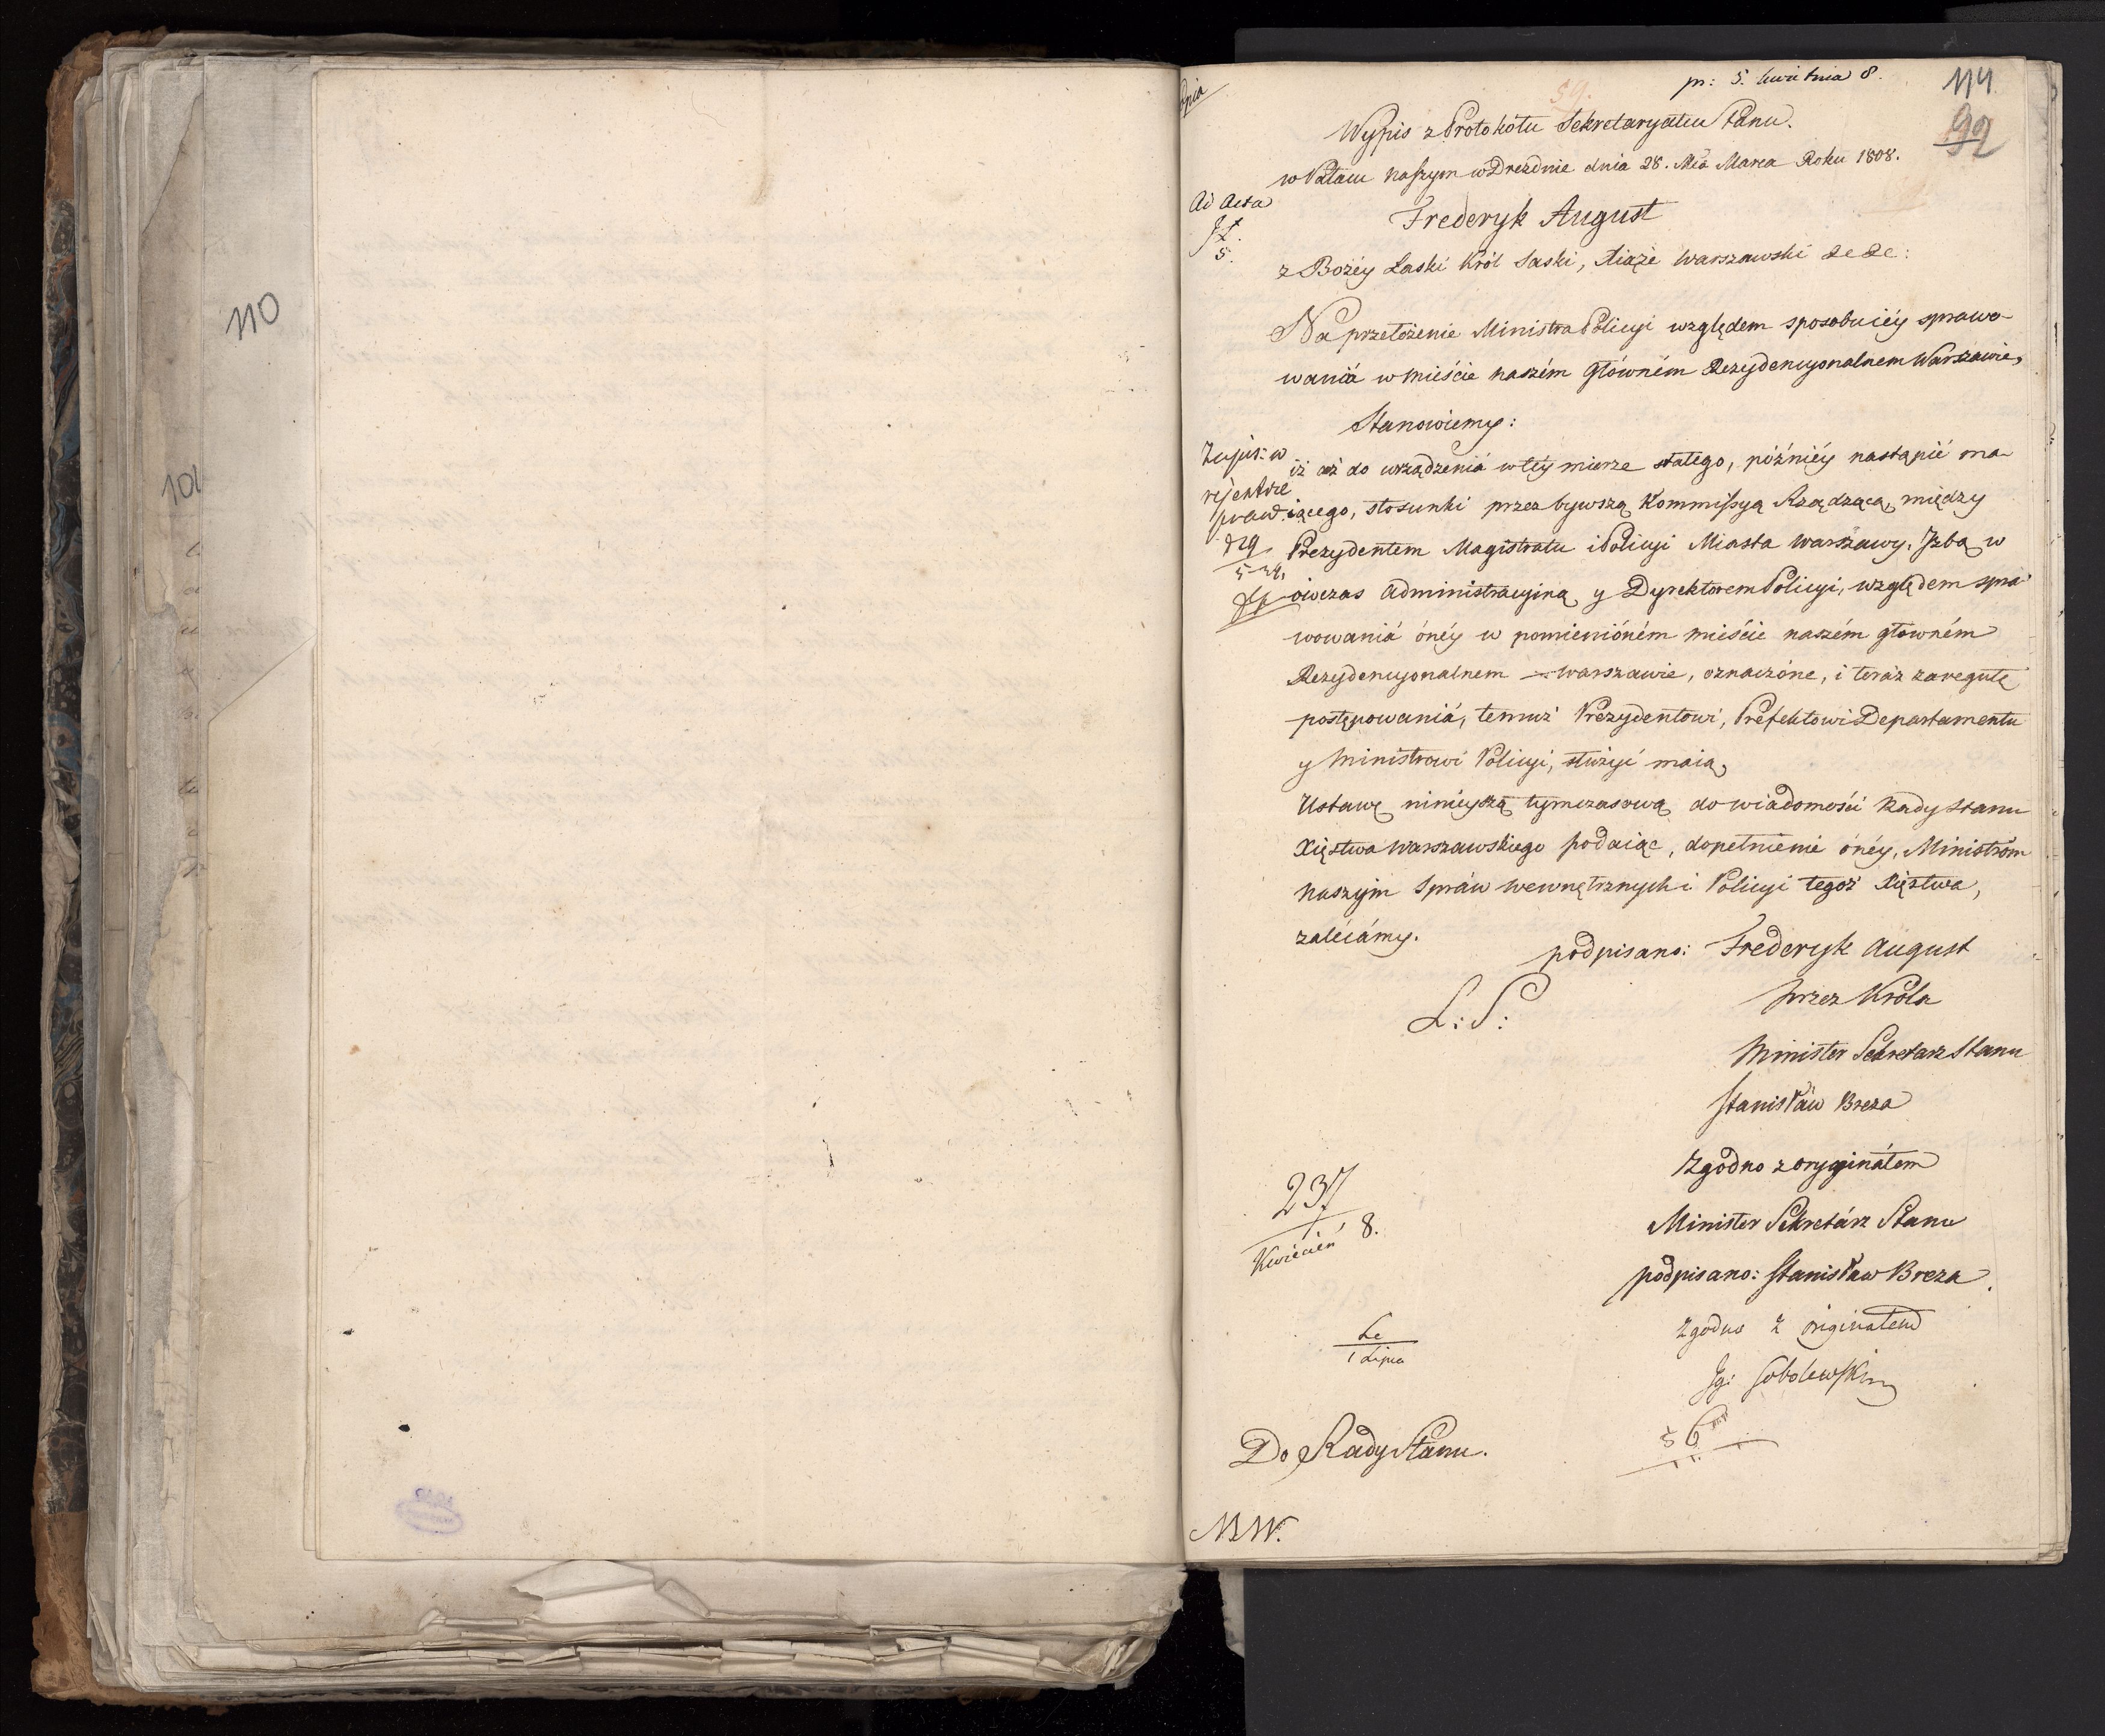 110
10
pr: 5. kwietnia 8.
114
59.
92
Wypis z Protokółu Sekretaryatu Stanu.
w Pałacu naszym w Dreźdnie dnia 28. Mca Marca Roku 1808.
Ad Acta
Frederyk August
z Bożéy Łaski Król Saski, Xiąże Warszawski &c &c:
Na przełożenie Ministra Policyi względem sposobniey sprawo-
wania w mieście naszém Główném Rezydencyonalnem Warszawie,
Stanowiemy:
iż aż do urządzenia w téy mierze stałego, późniéy nastąpić ma-
iącego, stosunki przez bywszą Kommissyą Rządzącą, między
Prezydentem Magistratu i Policyi Miasta Warszawy, Izbą w
ówczas Administracyiną y Dyrektorem Policyi, względem spra-
wowania ónéy w pomienióném mieście naszém główném
Rezydencyonalnem Warszawie, oznaczóne, i teraz za regułę
postępowania, temuż Prezydentowi, Prefektowi Departamentu
y Ministrowi Policyi, służyć maią,
Ustawę ninieyszą tymczasową do wiadomości Rady Stanu
Xięstwa Warszawskiego podaiąc, dopełnienie ónéy, Ministróm
naszym Spraw wewnętrznych i Policyi tegoż Xięstwa,
zalécámy.
podpisano: Frederyk August
L: S:
przez Króla
Minister Sekretarz Stanu
Stanisław Breza
Zgodno z oryginałem
Minister Sekretarz Stanu
podpisano: Stanisław Breza.
237
Kwiecień 8.
Zgodno z originałem
1 Lipca
Sobolewski
56
Do Rady Stanu.